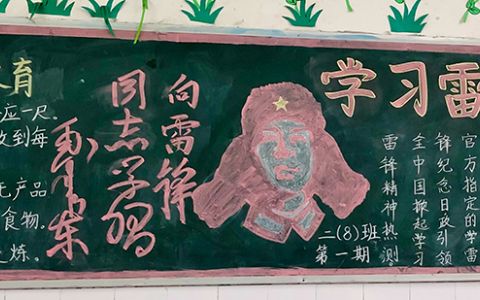 育
应一尺.
收到每
产品
食物.
炼.
向雷锋
同志学习
毛泽东
学习雷
官方指定的学雷
锋纪念日政引领
全中国掀起学习
雷锋精神热潮
二(8)班
第一期